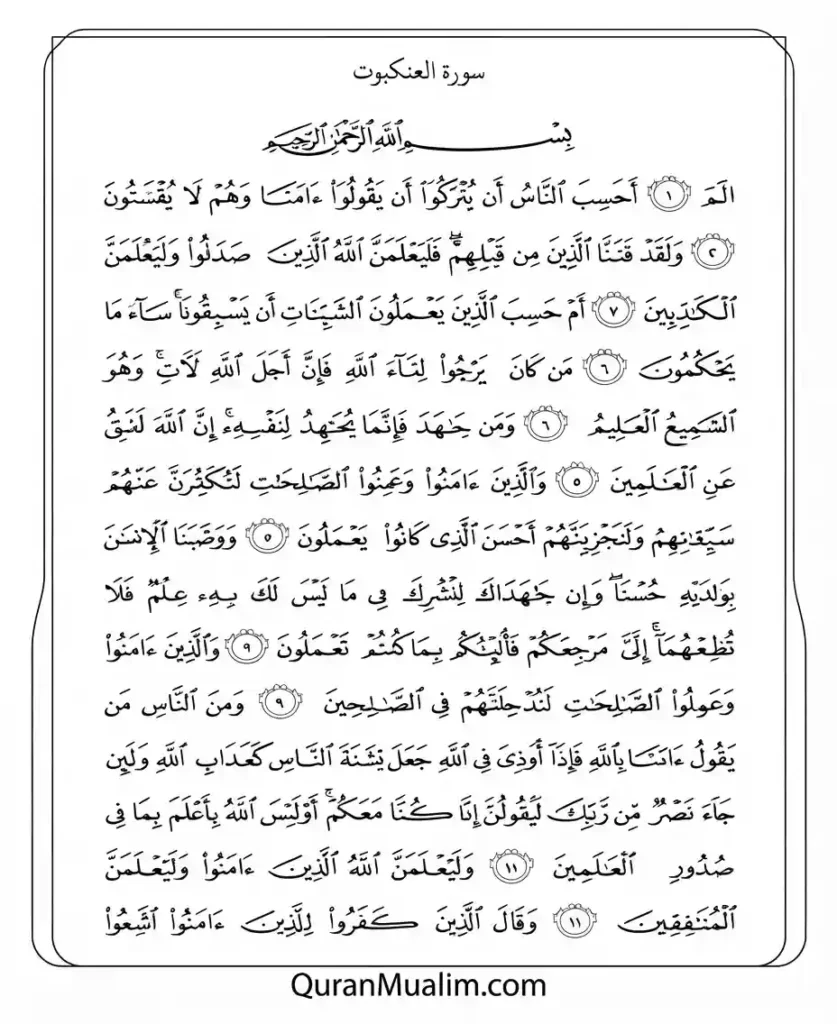 سورة العنكبوت
بِسْمِ اللَّهِ الرَّحْمَٰنِ الرَّحِيمِ
الَمَ ١ أَحَسِبَ النَّاسُ أَن يُتْرَكُوٓاْ أَن يَقُولُوٓاْ ءَامَنَا وَهُمْ لَا يُقْسَتُونَ
٢ وَلَقَدْ قَتَنَّا الَّذِينَ مِن قَبْلِهِمْۖ فَلَيَعْلَمَنَّ اللَّهُ الَّذِينَ صَدَلُواْ وَلَيَعْلَمَنَّ
الْكَٰذِبِينَ ٧ أَمْ حَسِبَ الَّذِينَ يَعْمَلُونَ الشَّيِّئَاتِ أَن يَسْبِقُونَاۚ سَآءَ مَا
يَحْكُمُونَ ٦ مَن كَانَ يَرْجُواْ لِتَآءَ اللَّهِ فَإِنَّ أَجَلَ اللَّهِ لَآتٍۚ وَهُوَ
الشَّمِيعُ الْعَلِيمُ ٦ وَمَن جَٰهَدَ فَإِنَّمَا يُجَٰهِدُ لِنَفْسِهِۦٓۚ إِنَّ اللَّهَ لَغَنِقُ
عَنِ الْعَٰلَمِينَ ٥ وَالَّذِينَ ءَامَنُواْ وَعَمِنُواْ الصَّٰلِحَٰتِ لَتُكَثِّرَنَّ عَنْهُمْ
سَيِّقَاتِهِمْ وَلَنَجْزِيَنَّهُمْ أَحْسَنَ الَّذِى كَانُواْ يَعْمَلُونَ ٥ وَوَصَّبَنَا الْإِنسَٰنَ
بِوَٰلِدَيْهِ حُسْنًاۖ وَإِن جَٰهَدَاكَ لِتُشْرِكَ فِى مَا لَيْسَ لَكَ بِهِۦ عِلْمٌ فَلَا
تُطِعْهُمَآۚ إِلَىَّ مَرْجِعَكُمْ فَأُنَبِّئُكُم بِمَا كُنتُمْ تَعْمَلُونَ ٩ وَالَّذِينَ ءَامَنُواْ
وَعَمِلُواْ الصَّٰلِحَٰتِ لَنُدْخِلَنَّهُمْ فِى الصَّٰلِحِينَ ٩ وَمَنَ النَّاسِ مَن
يَقُولُ ءَامَنَّا بِاللَّهِ فَإِذَآ أُوذِىَ فِى اللَّهِ جَعَلَ نِشْنَةَ النَّاسِ كَعَذَابِ اللَّهِ وَلَئِن
جَآءَ نَصْرٌ مِّن رَّبِّكَ لَيَقُولُنَّ إِنَّا كُنَّا مَعَكُمْۚ أَوَلَيْسَ اللَّهُ بِأَعْلَمَ بِمَا فِى
صُدُورِ الْعَٰلَمِينَ ١١ وَلَيَعْلَمَنَّ اللَّهُ الَّذِينَ ءَامَنُواْ وَلَيَعْلَمَنَّ
الْمُنَٰفِقِينَ ١١ وَقَالَ الَّذِينَ كَفَرُواْ لِلَّذِينَ ءَامَنُواْ اتَّبِعُواْ
QuranMualim.com